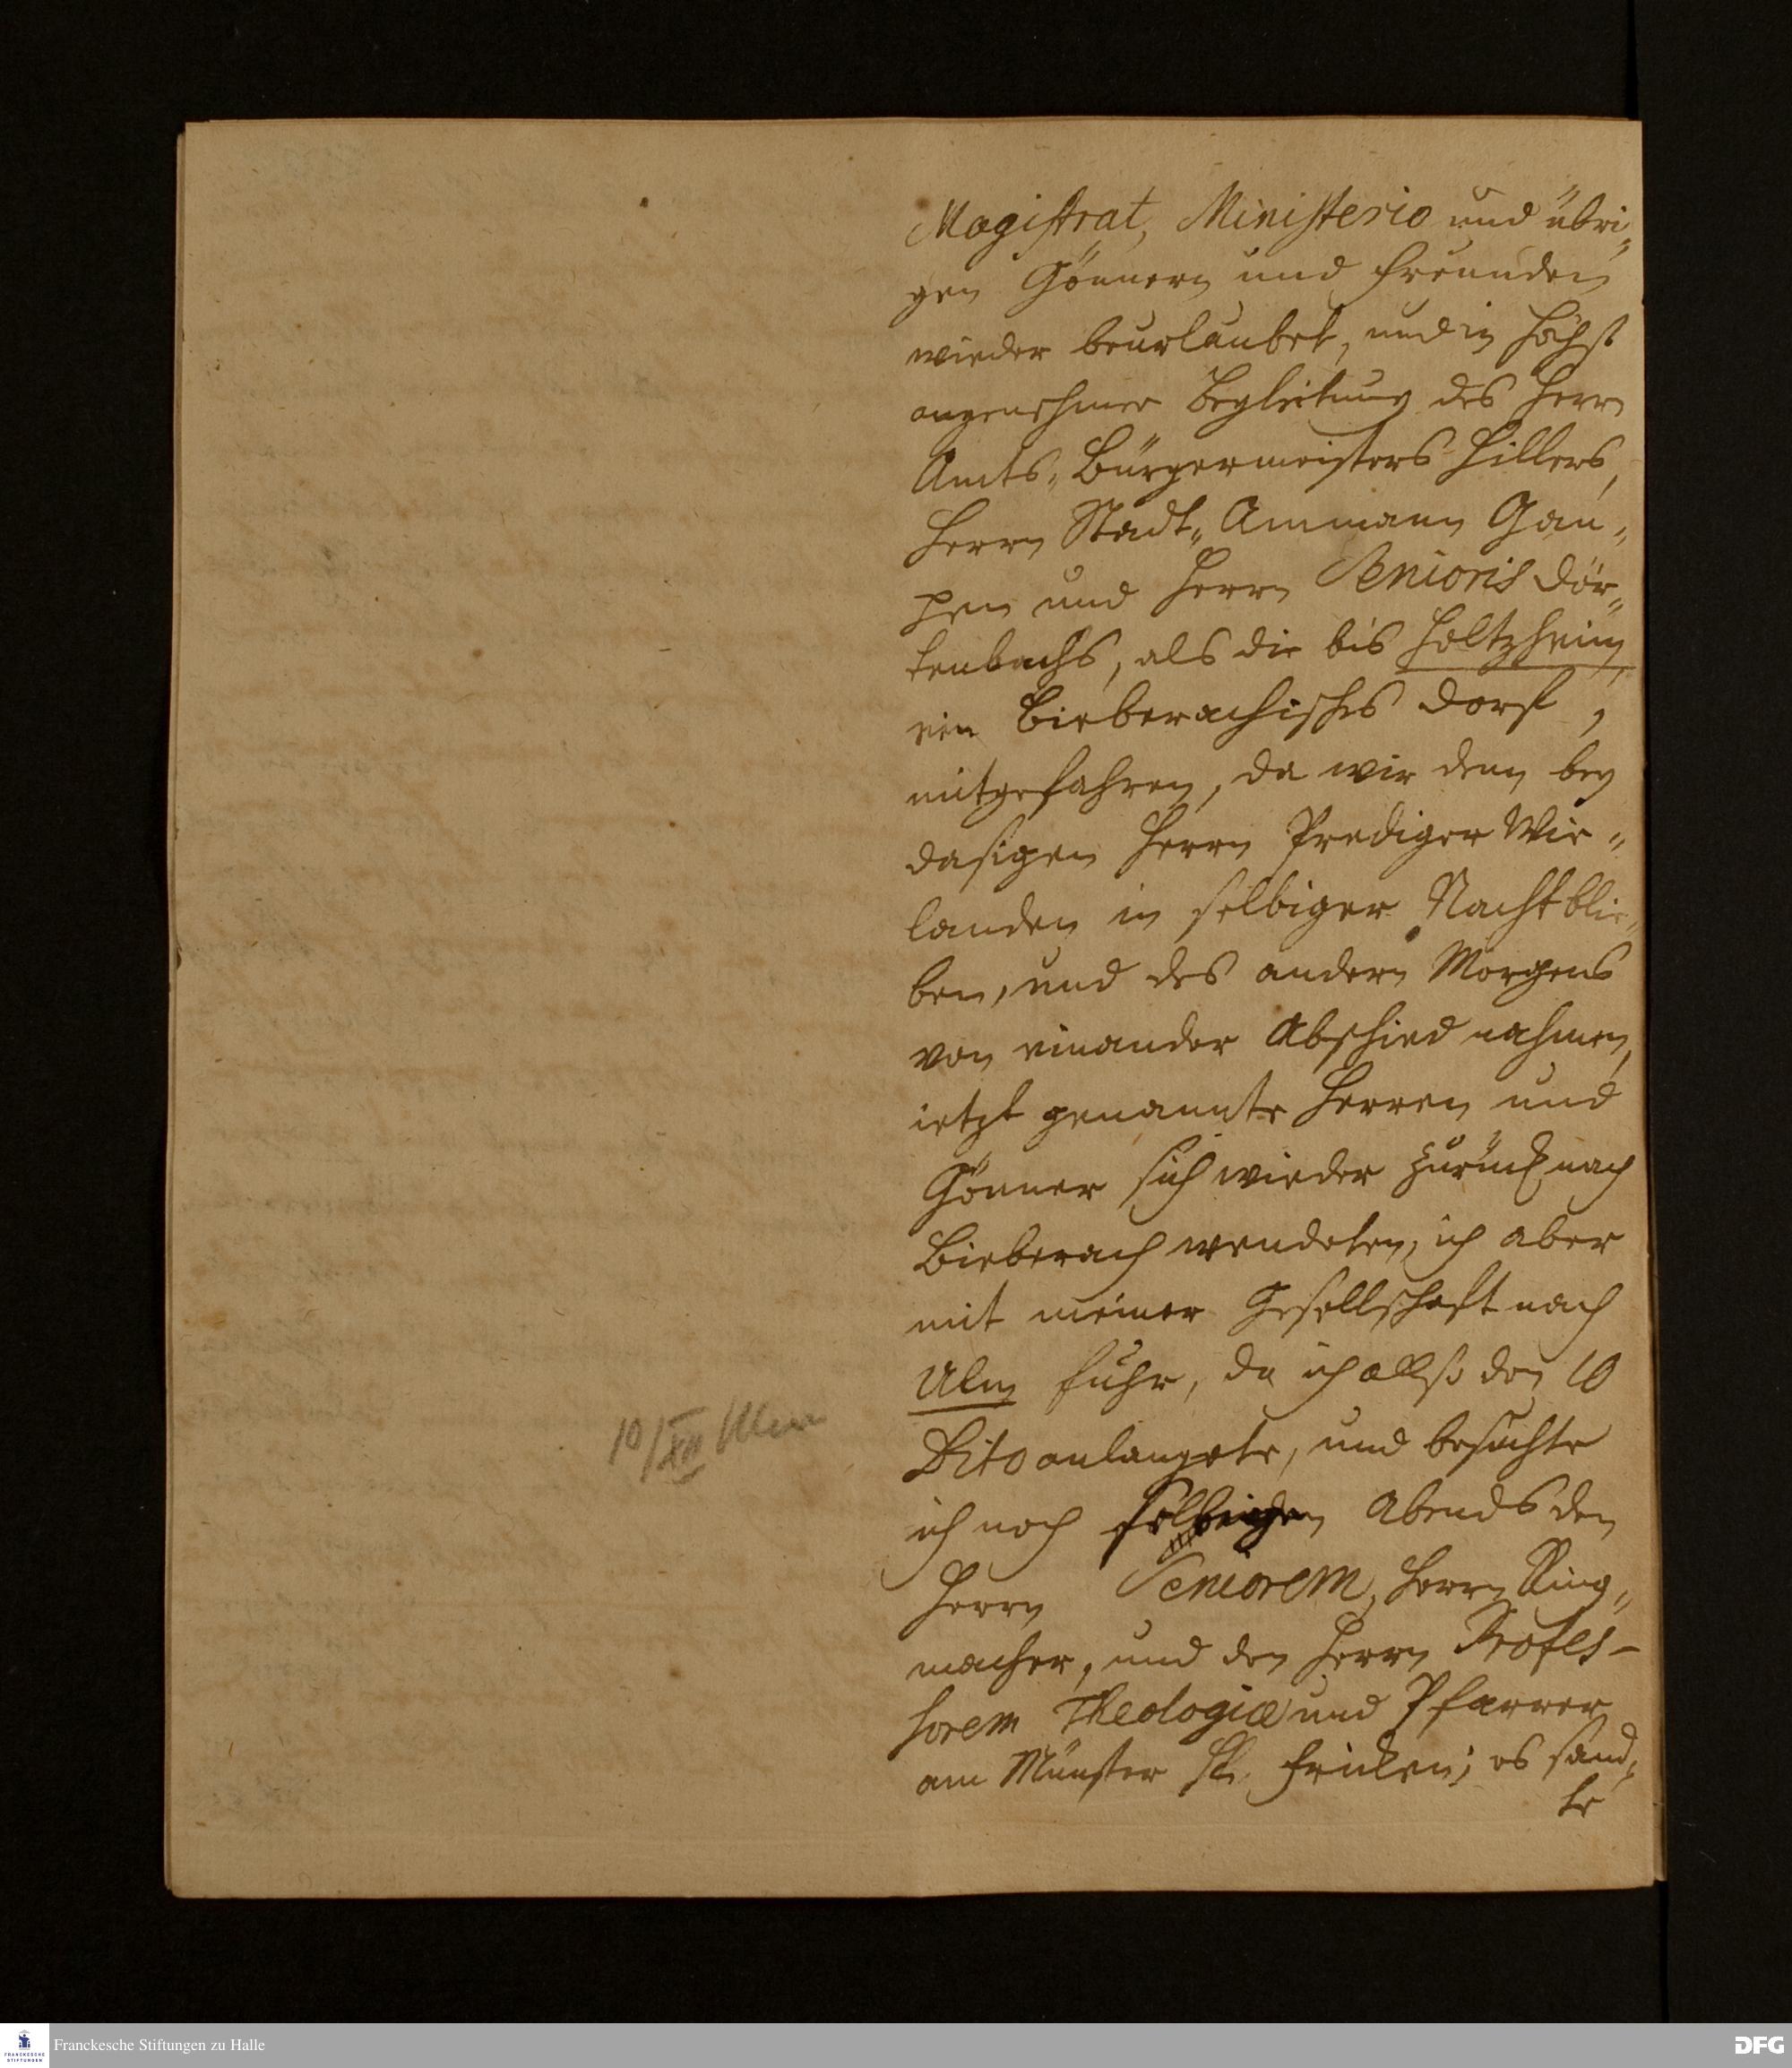 Magistrat, Ministerio und übri„
gen Gönnern und Freunden
wieder beurlaubet, und in höchst
angenehmer Begleitung des Herrn
Amts„Bürgermeisters Hillers,
Herrn Stadt„Ammann Gau„
pen und Herrn Senioris Dör„
tenbachs, als die bis Holtzheim,
ein Bieberachisches Dorf,
mitgefahren, da wir denn bey
dasigen Herrn Prediger Wie„
landen in selbiger Nacht blie„
ben, und des andern Morgens
von einander Abschied nahmen,
ietzt genannte Herren und
Gönner sich wieder zurück nach
Bieberach wendeten, ich aber
mit meiner Gesellschaft nach
Ulm fuhr, da ich allso den 10
Dito anlangete, und besuchte
10/XII Ulm
ich noch selbigen Abends den
Herrn Seniorem, Herrn Ring„
macher, und den Herrn Profes-
sorem Theologiæ und Pfarrer
am Münster H. Fricken; es sand„
te
Franckesche Stiftungen zu Halle
FRANCKESCHE
STIFTUNGEN
DFG